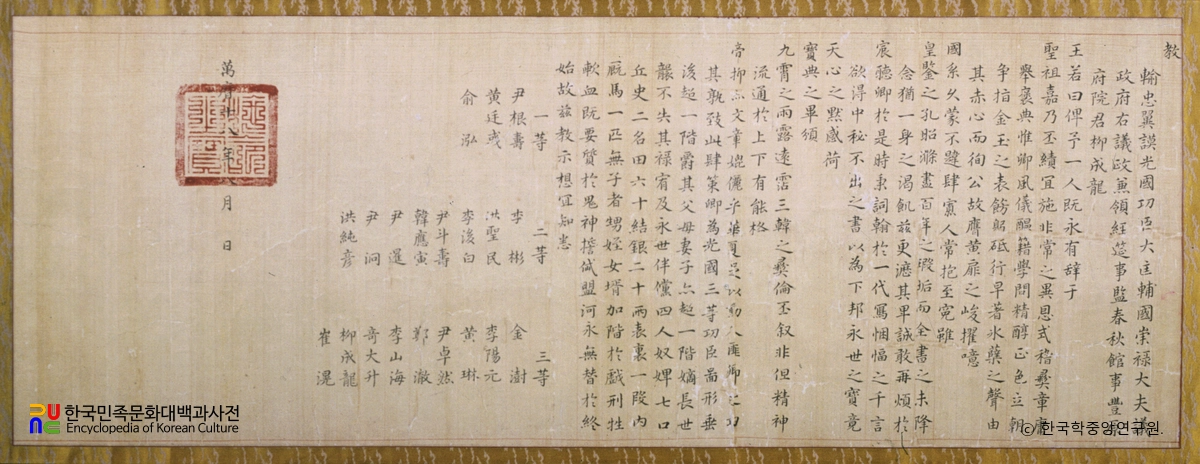 教
輸忠翼謨光國功臣大匡輔國崇祿大夫議
政府右議政兼領經筵事監春秋館事豐原
府院君柳成龍
王若曰俾予一人旣永有辞于
聖祖嘉乃丕績宜施非常之異恩式稽彜章庸
擧褒典惟卿風儀醞籍學問精醇正色立朝
争指金玉之表飭躬砥行早著氷蘗之聲由
其赤心而徇公故膺黄扉之峻擢噫
國系久蒙不韙肆寡人常抱至寃雖
皇鑒之孔昭滌盡百年之瑕垢而全書之未降
念猶一身之渴飢玆更瀝其卑誠敢再煩於
宸聽卿於是時秉詞翰於一代寫悃愊之千言
欲得中秘不出之書以為下邦永世之寶竟
天心之黙感荷
寳典之畢頒
九霄之雨露遠霑三韓之彜倫丕叙非但精神
流通於上下有能格
帝抑亦文章媲儷乎華夏足以動人匪卿之功
其孰致此肆策卿為光國三等功臣啚形垂
後超一階爵其父母妻子亦超一階嫡長世
襲不失其祿宥及永世伴儻四人奴婢七口
丘史二名田六十結銀二十兩表裏一段内
厩馬一匹無子者甥姪女壻加階於戯刑牲
歃血旣要質於鬼神誓誠盟河永無替於終
始故玆教示想冝知悉
一等
尹根壽
黄廷彧
俞泓
二等
李彬
洪聖民
李後白
尹斗壽
韓應寅
尹暹
尹泂
洪純彦
三等
金澍
李陽元
黄琳
尹卓然
鄭澈
李山海
竒大升
柳成龍
崔滉
萬年月 日
한국민족문화대백과사전
Encyclopedia of Korean Culture
ⓒ 한국학중앙연구원.